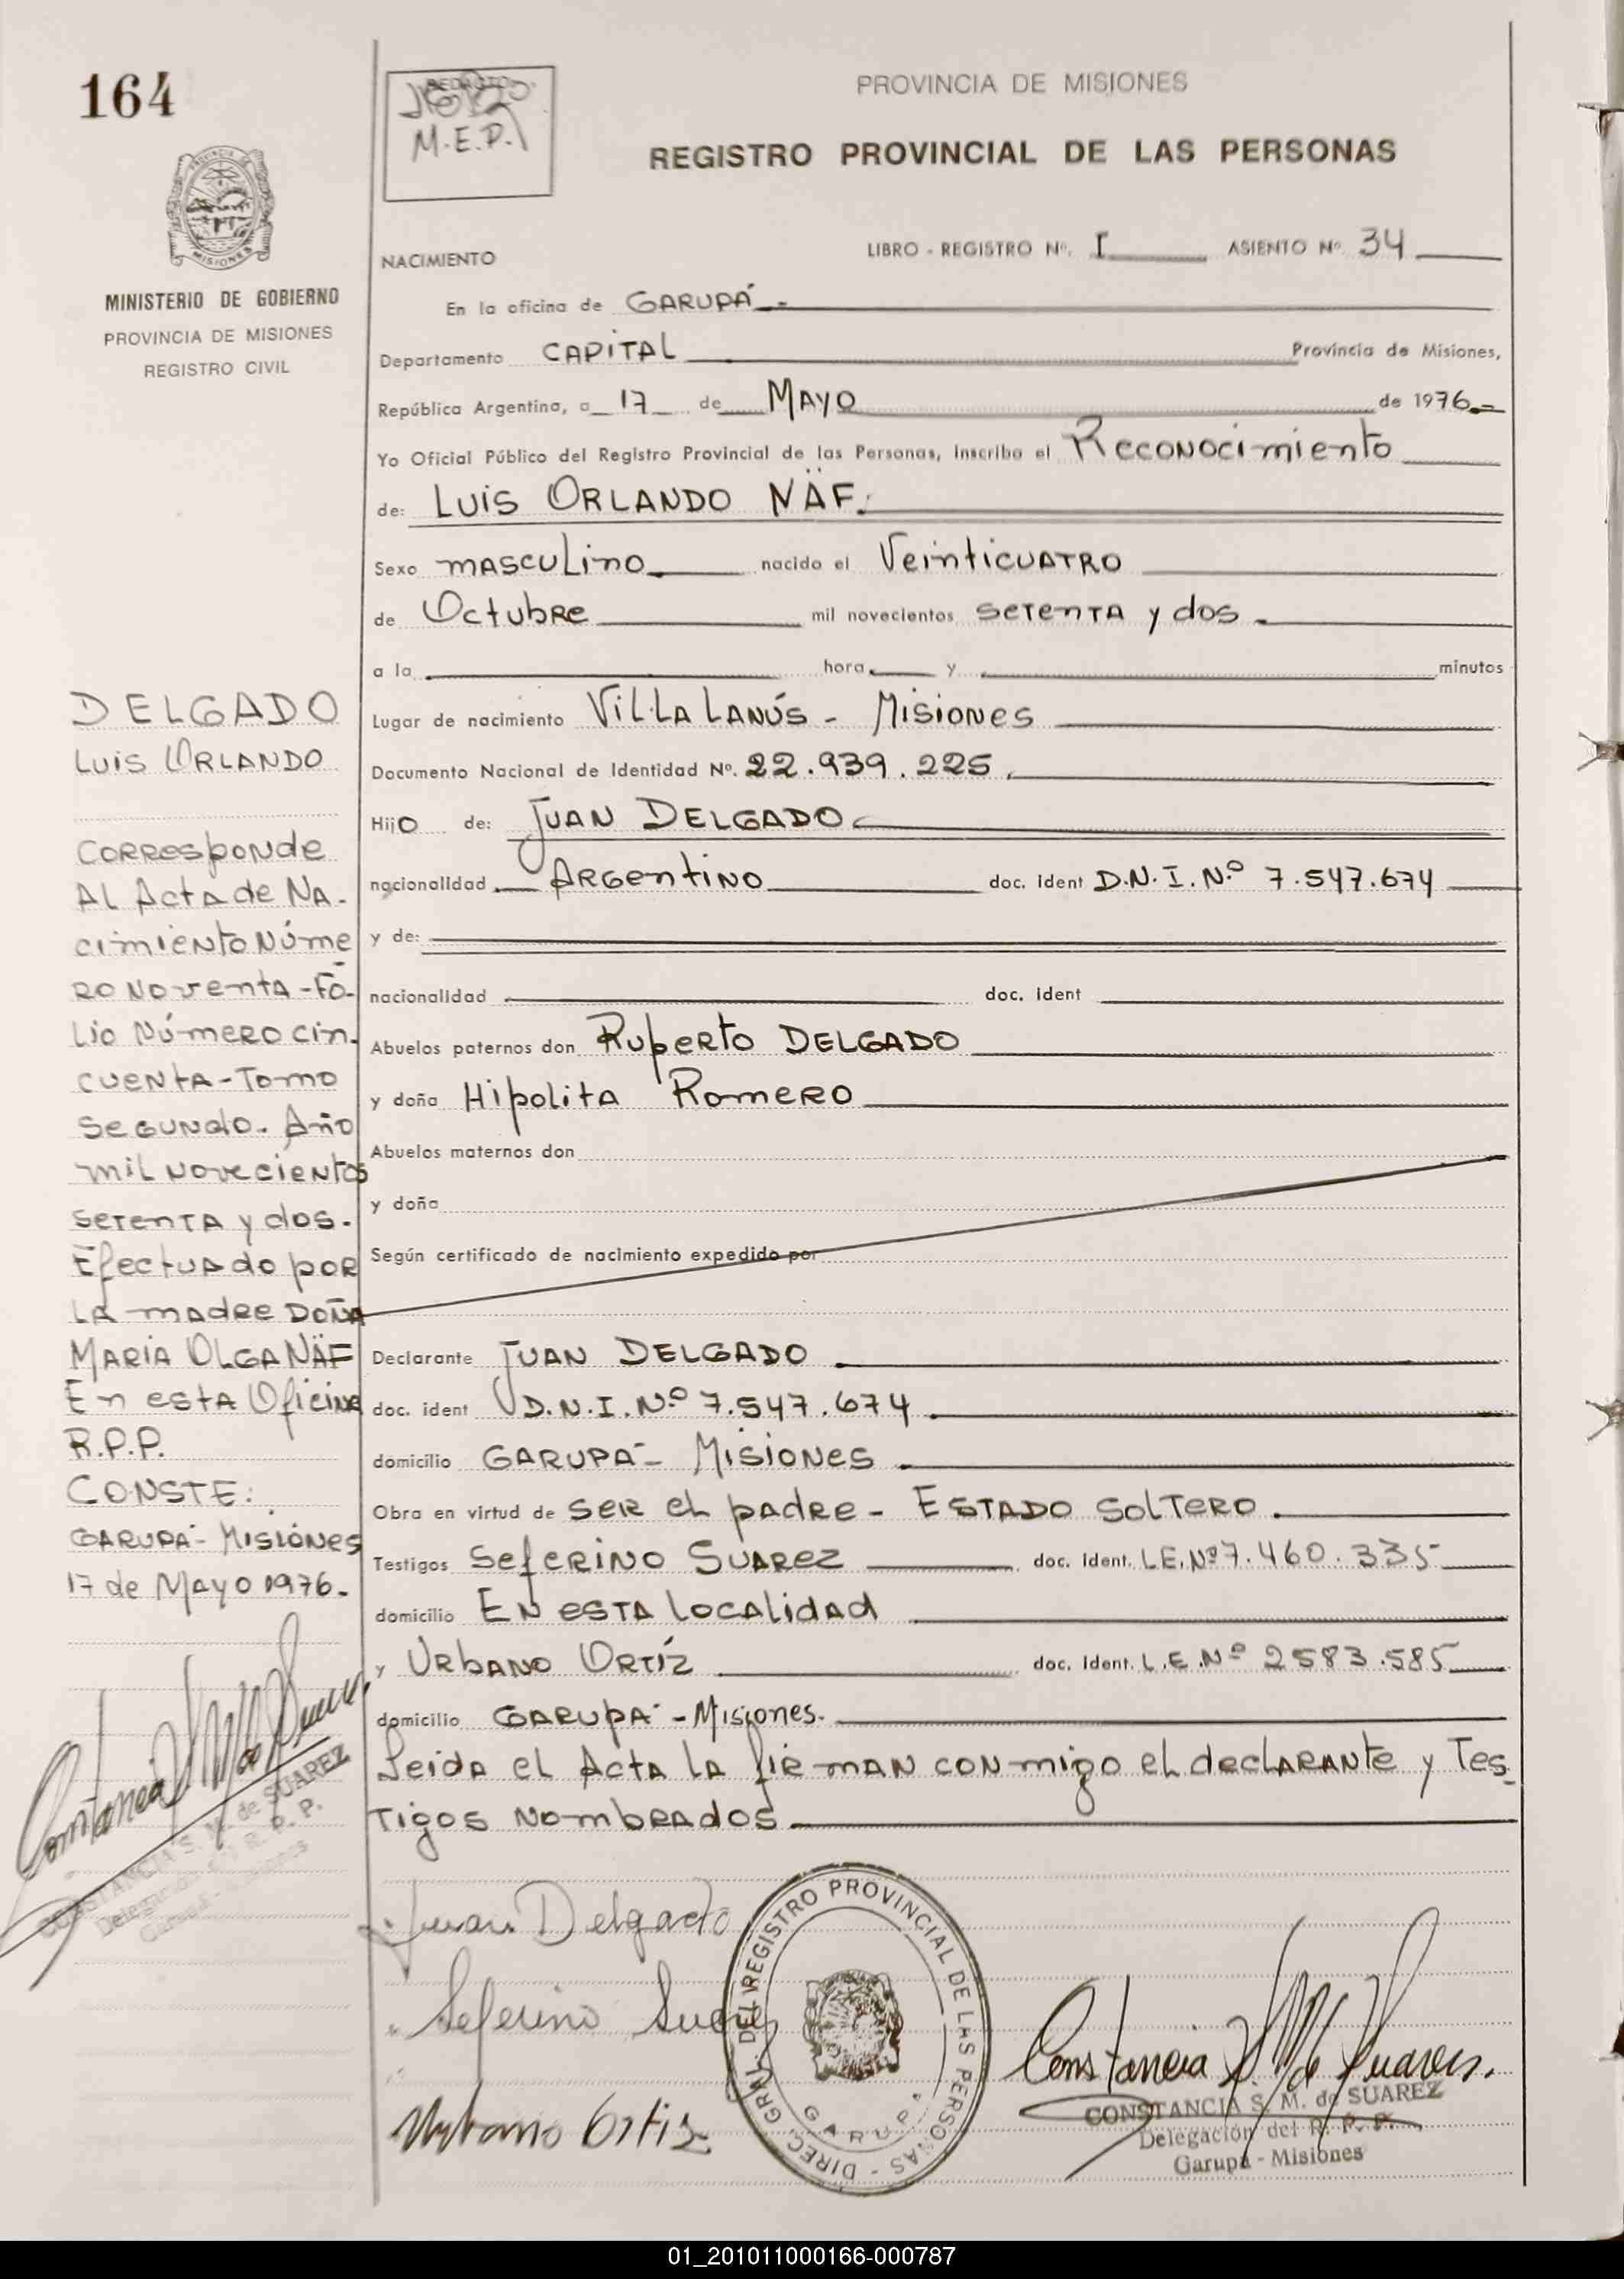 164
REDACTO
M.E.P.
PROVINCIA DE MISIONES
REGISTRO PROVINCIAL DE LAS PERSONAS
PROVINCIA DE MISIONES
MINISTERIO DE GOBIERNO
PROVINCIA DE MISIONES
REGISTRO CIVIL
NACIMIENTO LIBRO - REGISTRO Nº. I ASIENTO Nº 34
En la oficina de GARUPÁ.-
Departamento CAPITAL Provincia de Misiones,
República Argentina, a 17 de MAYO de 1976.=
Yo Oficial Público del Registro Provincial de las Personas, inscribo el Reconocimiento
de: Luis ORLANDO NÄF.
Sexo masculino nacido el Veinticuatro
de Octubre mil novecientos setenta y dos.
a la hora y minutos
Lugar de nacimiento Villa Lanús - Misiones
Documento Nacional de Identidad Nº. 22.939.225.
Hijo de: JUAN DELGADO
nacionalidad Argentino doc. ident D.N.I.Nº 7.547.674
y de:
nacionalidad doc. ident
Abuelos paternos don Ruperto DELGADO
y doña Hipolita Romero
Abuelos maternos don
y doña
Según certificado de nacimiento expedido por
Declarante JUAN DELGADO
doc. ident D.N.I.Nº 7.547.674.
domicilio GARUPÁ- Misiones.
Obra en virtud de ser el padre - ESTADO soltero.
Testigos Seferino Suarez doc. ident. L.E.Nº 7.460.335
domicilio En esta localidad
y Urbano Ortíz doc. ident. L.E.Nº 2583.585
domicilio GARUPÁ - Misiones.
Leida el Acta la firman conmigo el declarante y Tes-
tigos nombrados.
DELGADO
Luis ORLANDO
Corresponde
Al Acta de Na-
cimiento Núme
ro noventa - Fó-
lio Número cin-
cuenta - Tomo
Segundo. Año
mil novecientos
setenta y dos.
Efectuado por
la madre Doña
MARIA OLGA NÄF
En esta Oficina
R.P.P.
CONSTE:
GARUPÁ - Misiones
17 de Mayo 1976.-
Constancia S. M. de Suarez
CONSTANCIA S. M. de SUAREZ
Delegación del R. P. P.
Garupá - Misiones
Juan Delgado
Seferino Suarez
Urbano Ortiz
DIREC. GRAL. DEL REGISTRO PROVINCIAL DE LAS PERSONAS -
GARUPA
Constancia S. M. de Suarez.
CONSTANCIA S. M. de SUAREZ
Delegación del R. P. P.
Garupá - Misiones
01_201011000166-000787